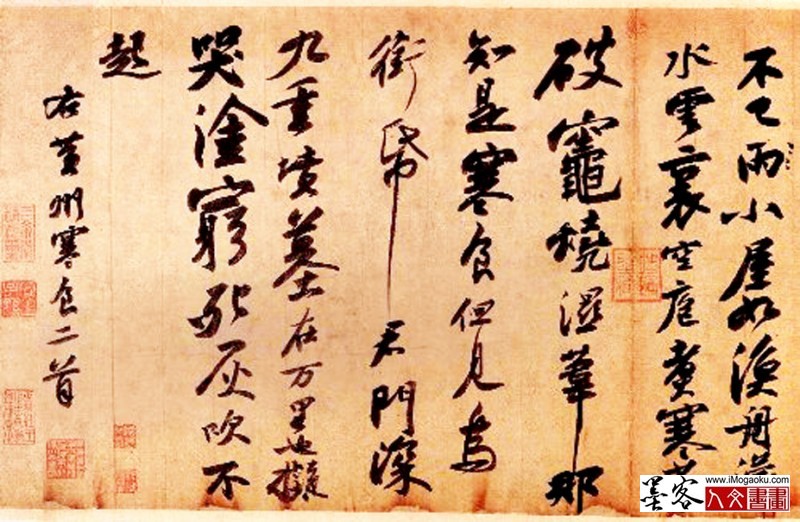 不已雨小屋如漁舟濛
水雲裏空庖煮寒菜
破竈燒濕葦那
知是寒食但見烏
銜帋君門深
九重墳墓在万里也擬
哭塗窮死灰吹不
起
右黃州寒食二首
www.iMogaoku.com
墨客人文書畫